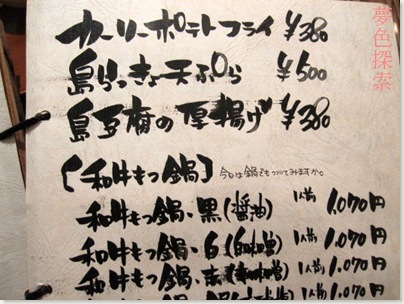 カーリーポテトフライ ¥380
島らっきょ天ぷら ¥500
島豆腐の厚揚げ ¥380
[和牛もつ鍋] 今日は鍋でもつついてみますか。
和牛もつ鍋・黒(醤油) 1人前 1,070円
和牛もつ鍋・白(白味噌) 1人前 1,070円
和牛もつ鍋・赤(赤味噌) 1人前 1,070円
夢色探索